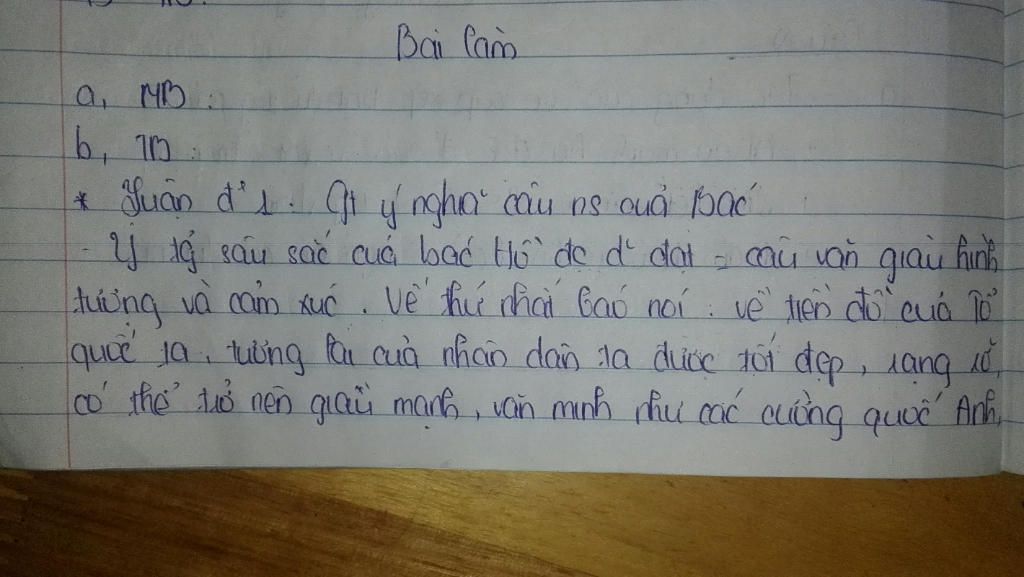 Bài làm
a, MB :
b, TB :
* Luận đ' 1 : Gt ý nghĩa câu ns của Bác
- Ý tg sâu sắc của bác Hồ đc d' đạt = câu văn giàu hình
tượng và cảm xúc . Vế thứ nhất báo nói : về tiền đồ của Tổ
quốc ta, tương lai của nhân dân ta được tốt đẹp, rạng rỡ,
có thể trở nên giàu mạnh, văn minh như các cường quốc Anh,